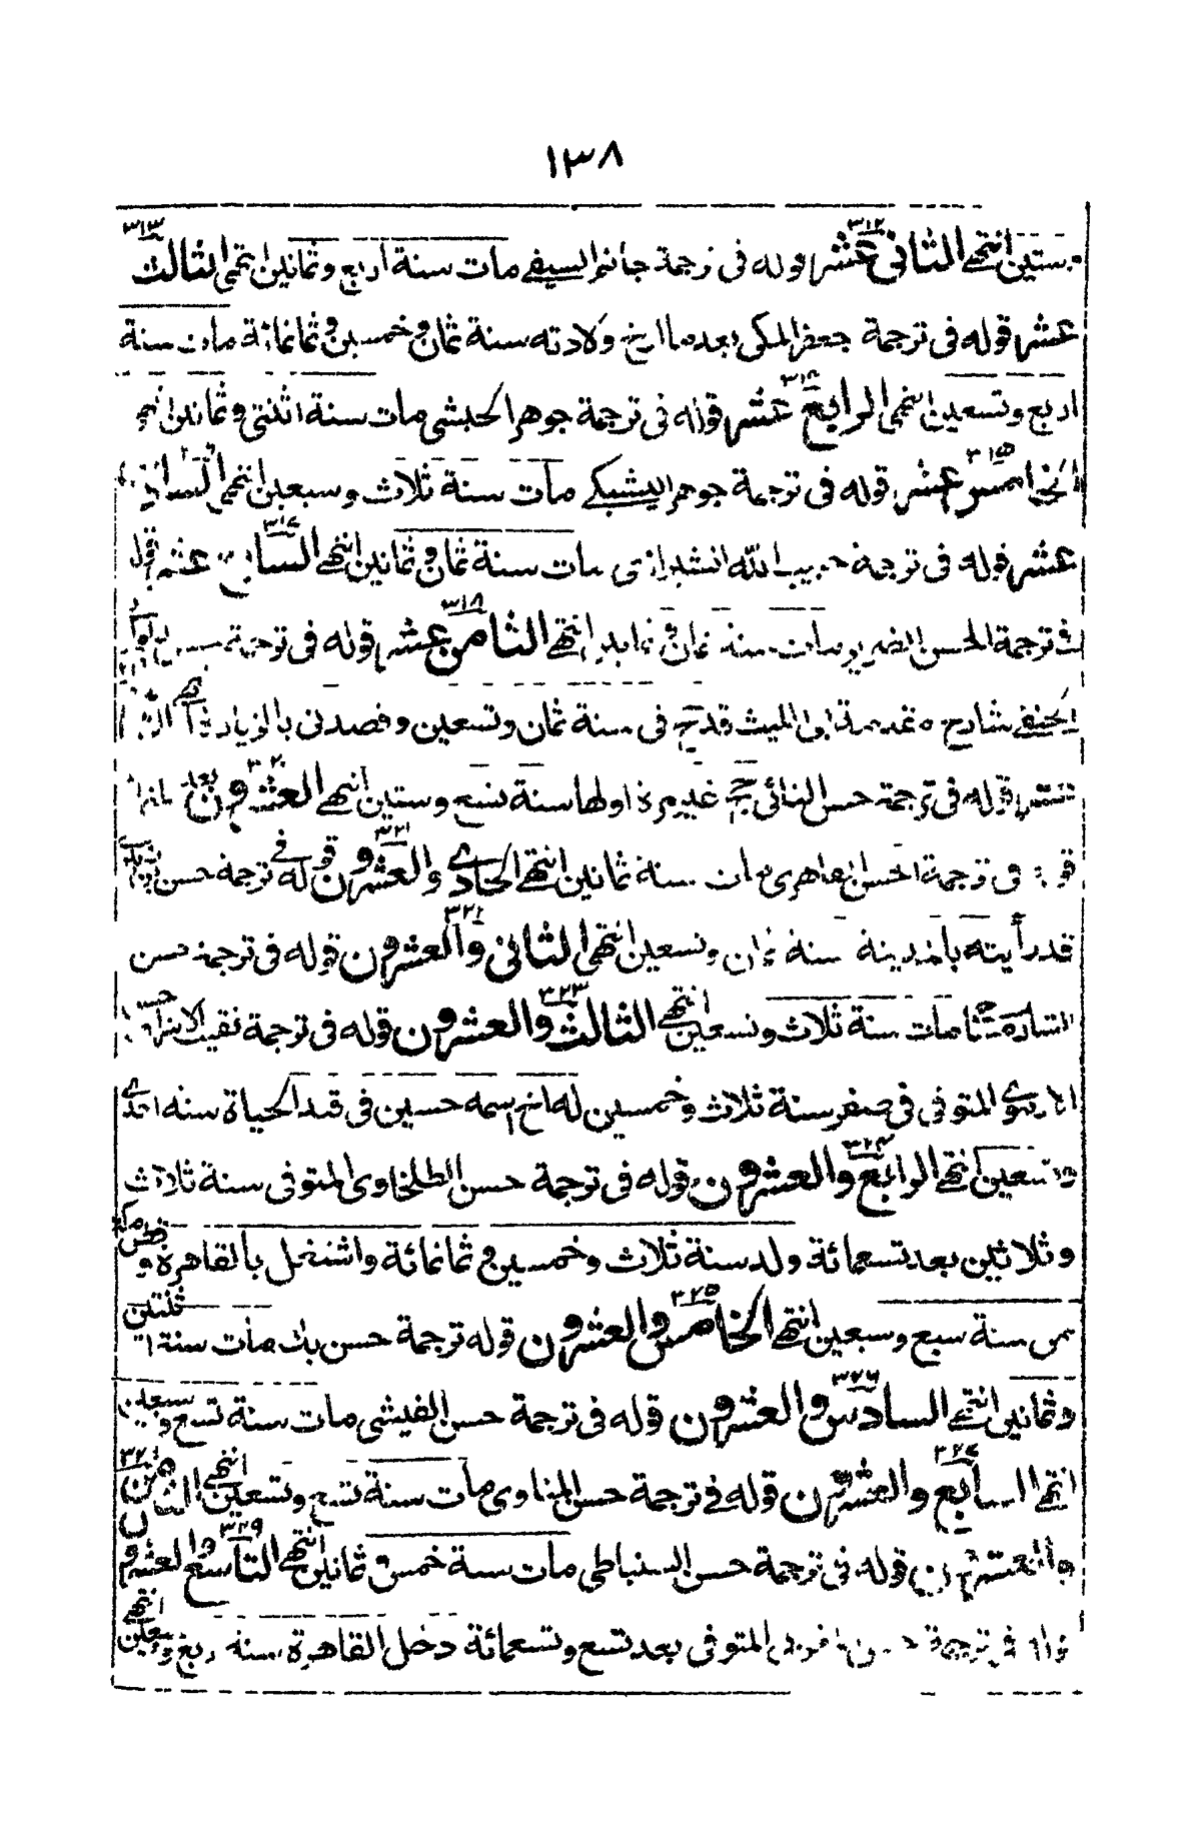 ١٣٨
وستين انتهى الثاني عشر ٣١٢ قوله في ترجمة جانم السيفي مات سنة اربع وثمانين انتهى الثالث ٣١٣
عشر قوله في ترجمة جعفر المكي بعد ما ارخ ولادته سنة ثمان وخمسين وثمانمائة مات سنة
اربع وتسعين انتهى الرابع عشر قوله في ترجمة جوهر الحبشي مات سنة اثنتي وثمانين انتهى
الخامس عشر ٣١٥ قوله في ترجمة جوهر اليشبكي مات سنة ثلاث وسبعين انتهى السادس
عشر قوله في ترجمة حبيب الله مات سنة ثمان وثمانين انتهى السابع عشر قوله
في ترجمة الحسن الضرير مات سنة ثمان انتهى الثامن عشر ٣١٨ قوله في ترجمة
الحنفي شارح مقدمة ابي الليث قد حج في سنة ثمان وتسعين وقصدني بالزيارة
عشر قوله في ترجمة حسن حج غير مرة اولها سنة تسع وستين انتهى العشرون ٣٢٠
في ترجمة مات سنة ثمانين انتهى الحادي والعشرون ٣٢١ قوله في ترجمة حسن
قد رأيته بالمدينة سنة ثمان وتسعين انتهى الثاني والعشرون قوله في ترجمة حسن
مات سنة ثلاث وتسعين انتهى الثالث والعشرون ٣٢٣ قوله في ترجمة نقيب
المتوفى في صفر سنة ثلاث وخمسين له اخ اسمه حسين في قيد الحياة سنة احدى
وتسعين انتهى الرابع والعشرون ٣٢٤ قوله في ترجمة حسن الطلخاوي المتوفى سنة ثلاث
وثلاثين بعد تسعمائة ولد سنة ثلاث وخمسين وثمانمائة واشتغل بالقاهرة و
سنة سبع وسبعين انتهى الخامس والعشرون ٣٢٥ قوله ترجمة حسن بك مات سنة
وثمانين انتهى السادس والعشرون ٣٢٦ قوله في ترجمة حسن الفيشي مات سنة تسع وسبعين
انتهى السابع والعشرون قوله في ترجمة حسن المناوي مات سنة تسع وتسعين انتهى الثامن
والعشرون قوله في ترجمة حسن السنباطي مات سنة خمس وثمانين انتهى التاسع والعشرون ٣٢٩
في ترجمة المتوفى بعد تسع وتسعمائة دخل القاهرة سنة